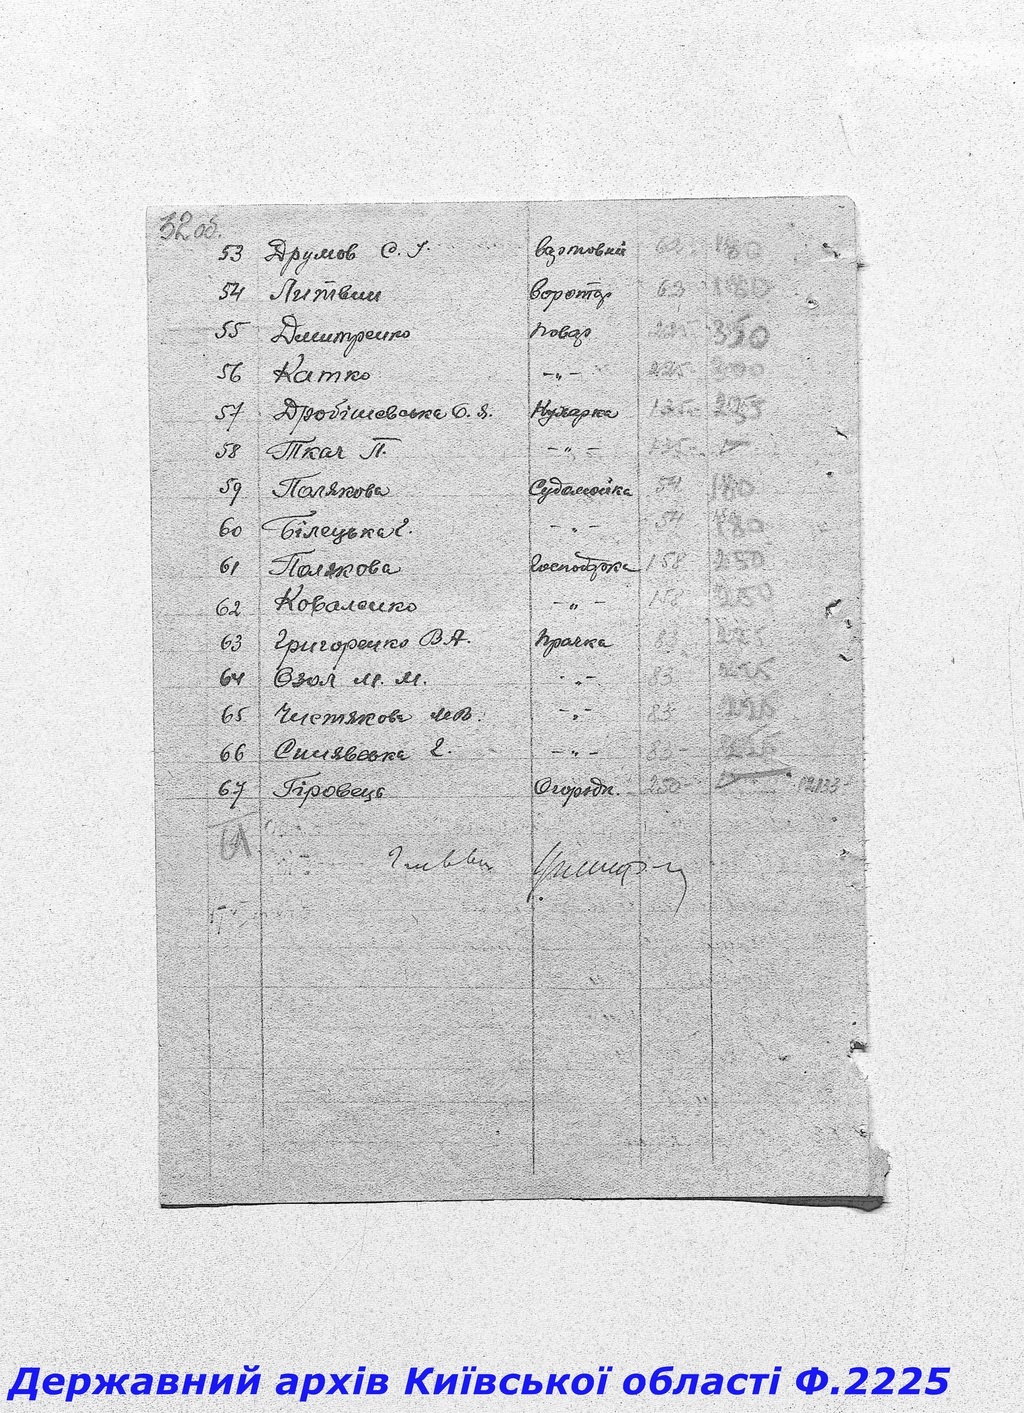 32 об.
53 Друмов С. І. вартовий 63 180
54 Литвин воротар 63 180
55 Дмитренко повар 225 350
56 Катко -"- 225 300
57 Дробішевська Є. Я. Кухарка 135 225
58 Ткач П. -"- 135
59 Полякова Судомойка 54 180
60 Білецька Є. -"- 54 180
61 Полякова 158 250
62 Коваленко -"- 158 250
63 Григоренко В А. прачка 83 225
64 Озол М. М. -"- 83 225
65 Чистякова М.В. -"- 83 225
66 Синявська Є. -"- 83 225
67 Гіровець Огородн. 250
Державний архів Київської області Ф.2225